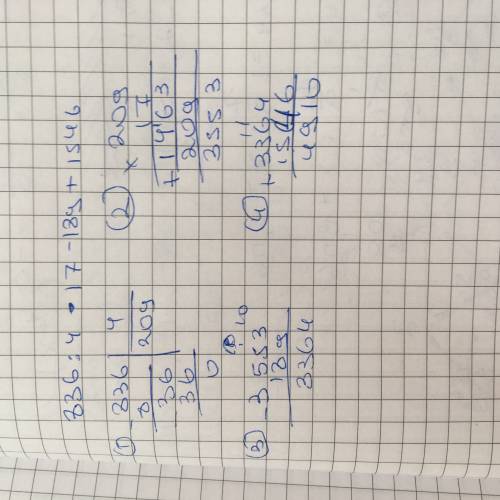 836:4•17-189+1546
① 836 | 4
8 | 209
36
36
0
② × 209
17
+1463
209
3553
③ -3553
189
3364
④ +3364
1546
4910